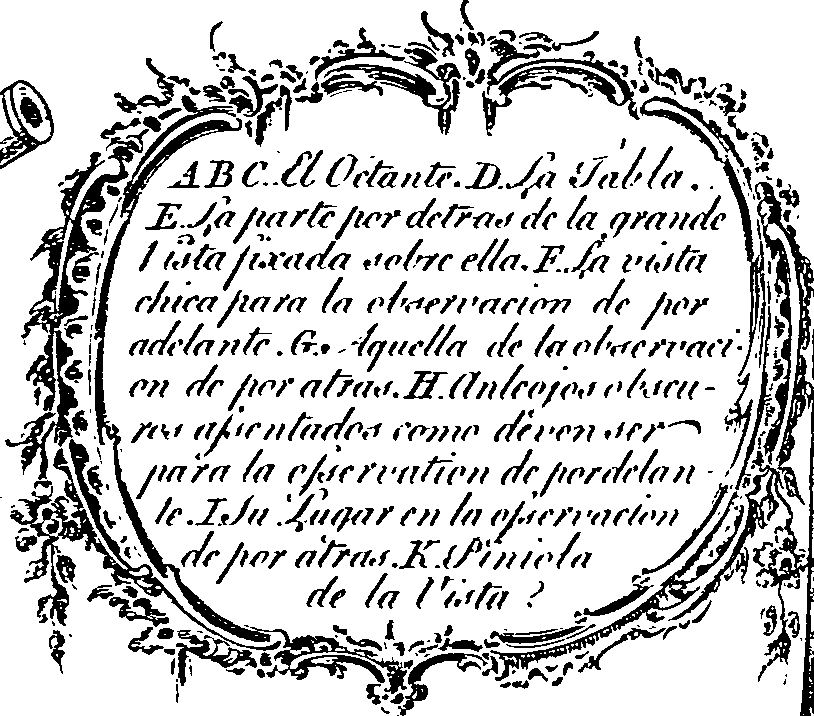 A B C. El Octante. D. La Tabla.
E. La parte por detras de la grande
Vista fixada sobre ella. F. La vista
chica para la observacion de por
adelante. G. Aquella de la observaci-
on de por atras. H. Anteojos obscu-
ros assentados como deven ser
para la osservation de pordelan-
te. I. Su Lugar en la osservacion
de por atras. K. Piniola
de la Vista?